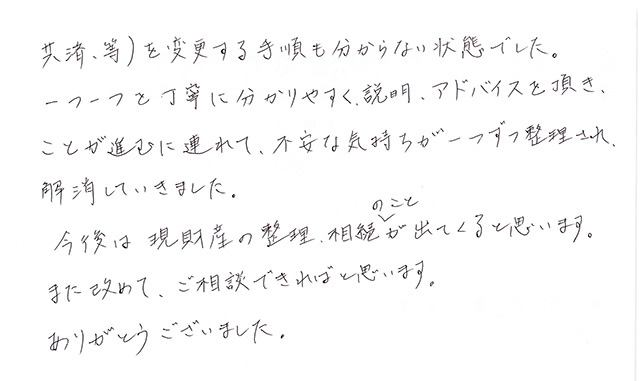 共済、等)を変更する手順も分からない状態でした。
一つ一つと丁寧に分かりやすく、説明、アドバイスを頂き、
ことが進むに連れて、不安な気持ちが一つずつ整理され、
解消していきました。
今後は現財産の整理、相続のことが出てくると思います。
また改めて、ご相談できればと思います。
ありがとうございました。